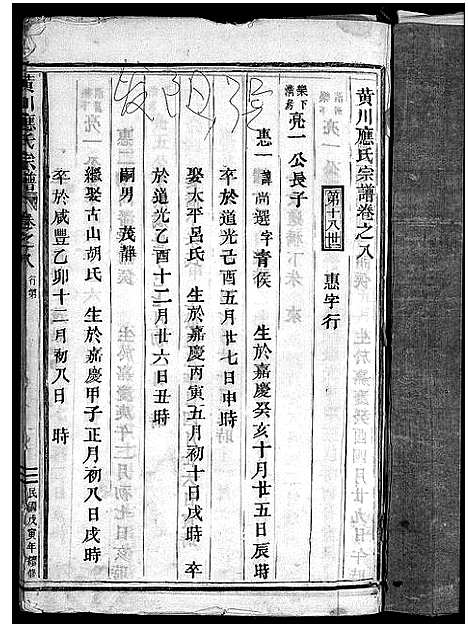 黄川應氏宗譜卷之八
第十八世 惠字行
樂下
亮一公長子
惠一 諱尚選字青侯 生於嘉慶癸亥十月廿五日辰時
卒於道光己酉五月廿七日申時
娶太平呂氏 生於嘉慶丙寅五月初十日戌時 卒
於道光乙酉十二月廿六日丑時
嗣男 茂靜
繼娶古山胡氏 生於嘉慶甲子正月初八日戌時
卒於咸豐乙卯十二月初八日 時
黄川應氏宗譜 卷之八 行第
民國戊寅年續修